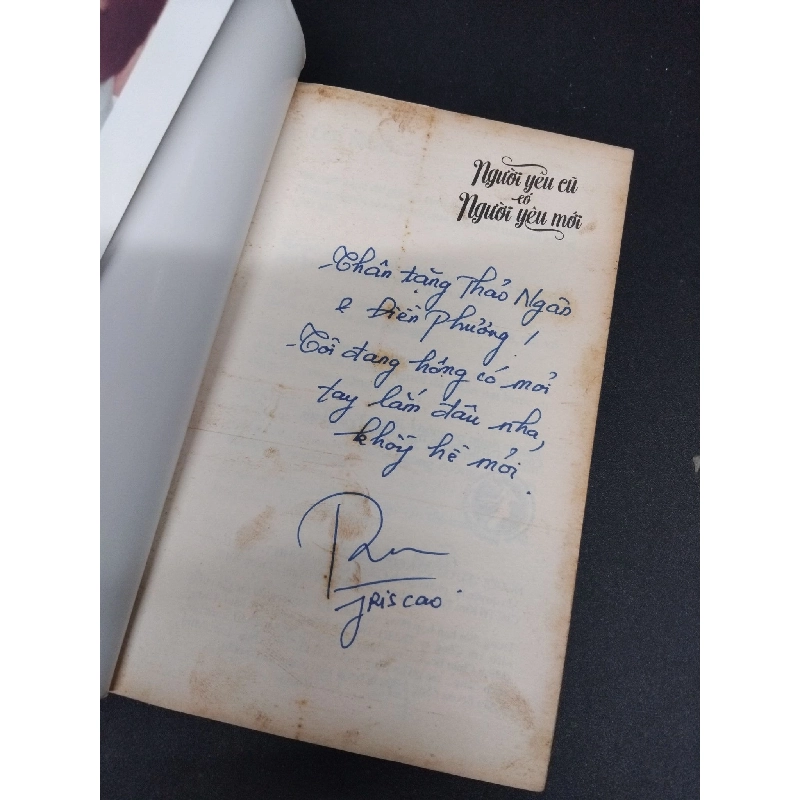 Người yêu cũ
có
Người yêu mới
Thân tặng Thảo Ngân
& Diễn Phương!
Tôi đang hổng có mỏi
tay lắm đâu nha,
khổng hề mỏi.
Iris cao